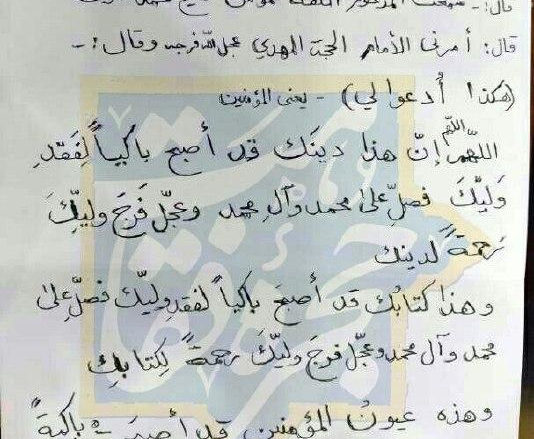 قال:- سمعت
قال: أمرني الأمام الحجة المهدي عجل الله فرجه وقال:-
(هكذا أُدعوا لي) - يعني المؤمنين
اللهم
اللّهمّ إنّ هذا دينَك قد أصبح باكياً لِفَقدِ
وَليِّكَ فصلِّ على محمد وآل محمد وعجّل فَرَجَ وليِّكَ
رَحمةً لدينك
وهذا كتابُك قد أصبحَ باكياً لفقدِ وليّك فصلِّ على
محمد وآل محمد وعجّل فرجَ وليِّكَ رحمةً لِكتابِكِ
وهذه عيونُ المؤمنين قد أصبحت باكيةً